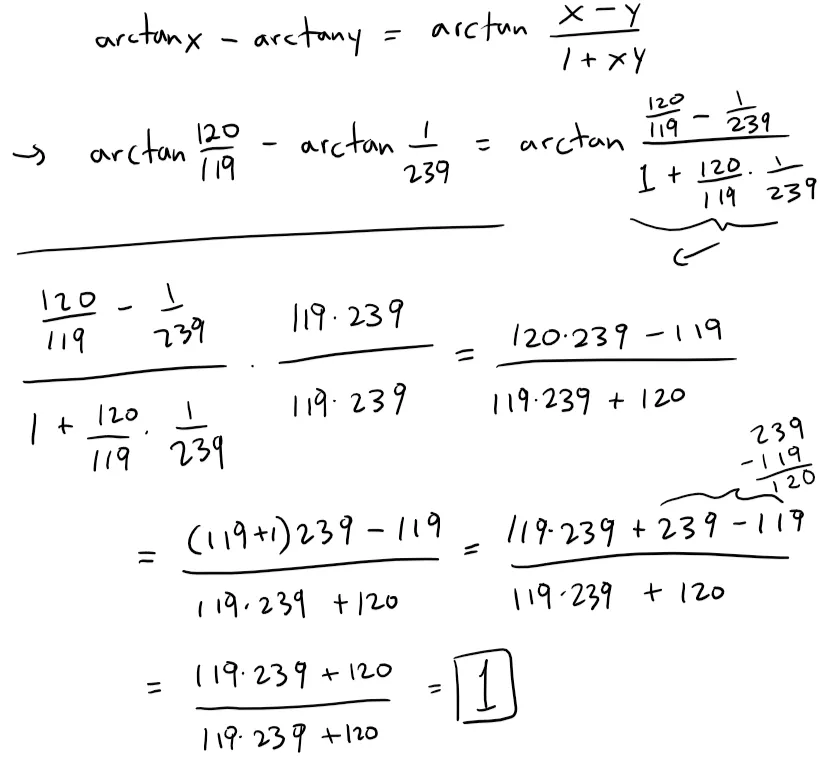 arctan x - arctan y = arctan (x - y)/(1 + xy)
→ arctan 120/119 - arctan 1/239 = arctan (120/119 - 1/239)/(1 + 120/119 · 1/239)
(120/119 - 1/239)/(1 + 120/119 · 1/239) · (119·239)/(119·239) = (120·239 - 119)/(119·239 + 120)
239
-119
120
= ((119+1)239 - 119)/(119·239 + 120) = (119·239 + 239 - 119)/(119·239 + 120)
= (119·239 + 120)/(119·239 + 120) = 1